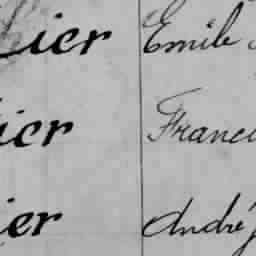 lier Emile
ier Franci
ier André